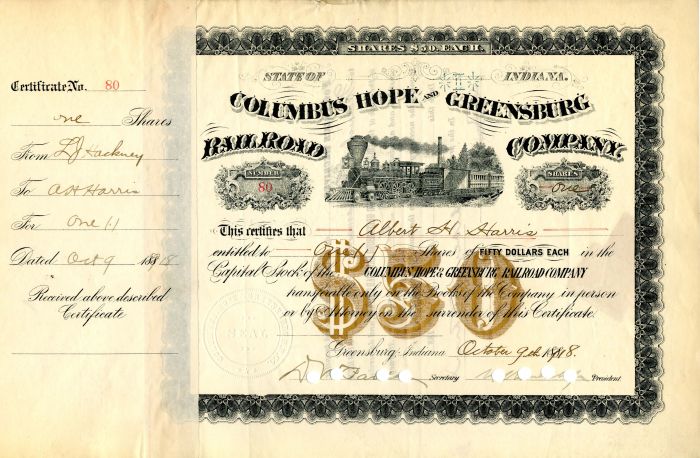 Certificate No. 80
one Shares
From L J Hackney
To A H Harris
For One (1)
Dated Oct 9 1918
Received above described
Certificate
SHARES $50. EACH.
STATE OF INDIANA.
COLUMBUS HOPE AND GREENSBURG
RAILROAD COMPANY.
NUMBER
80
SHARES
one
This certifies that Albert H. Harris
entitled to One (1) Shares of FIFTY DOLLARS EACH in the
Capital Stock of the COLUMBUS HOPE & GREENSBURG RAILROAD COMPANY
transferable only on the Books of the Company in person
or by Attorney on the surrender of this Certificate.
$50
SEAL
Greensburg, Indiana October 9th 1918.
Secretary President